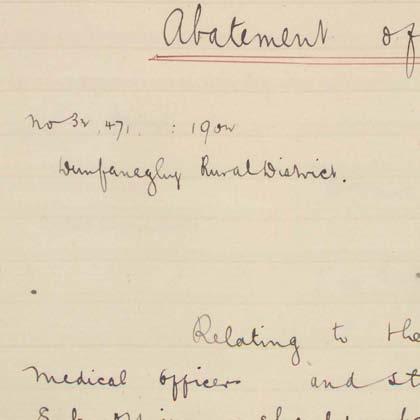 Abatement of
No 32,471. : 1902
Dunfanaghy Rural District.
Relating to the
Medical Officers and St
Sub